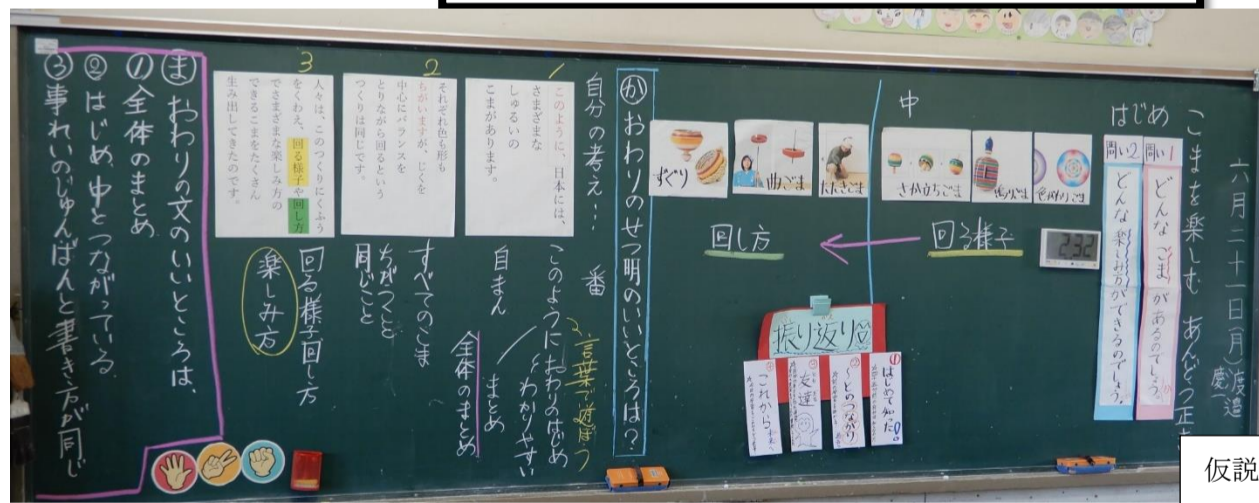 六月二十一日(月)
渡邉
慶一
こまを楽しむ あんどう正
はじめ
問い1
どんな こま があるのでしょう。
問い2
どんな楽しみ方ができるのでしょう。
中
色がわりごま
鳴りごま
さか立ちごま
たたきごま
曲ごま
ずぐり
2:32
回る様子
回し方
振り返り
①はじめて知った!
②〜とのつながり
③友達
④これから
か おわりのせつ明のいいところは?
自分の考え… 番
1
このように、日本には、
さまざまな
しゅるいの
こまがあります。
言葉で遊ぼう
このように おわりのはじめ
とわかりやすい
自まん
まとめ
全体のまとめ
2
それぞれ色も形も
ちがいますが、じくを
中心にバランスを
とりながら回るという
つくりは同じです。
すべてのこま
ちがうこと
同じこと
3
人々は、このつくりにくふう
をくわえ、回る様子や回し方
でさまざまな楽しみ方の
できるこまをたくさん
生み出してきたのです。
回る様子回し方
楽しみ方
ま おわりの文のいいところは、
① 全体のまとめ
② はじめ、中とつながっている。
③ 事れいのじゅんばんと書き方が同じ
仮説